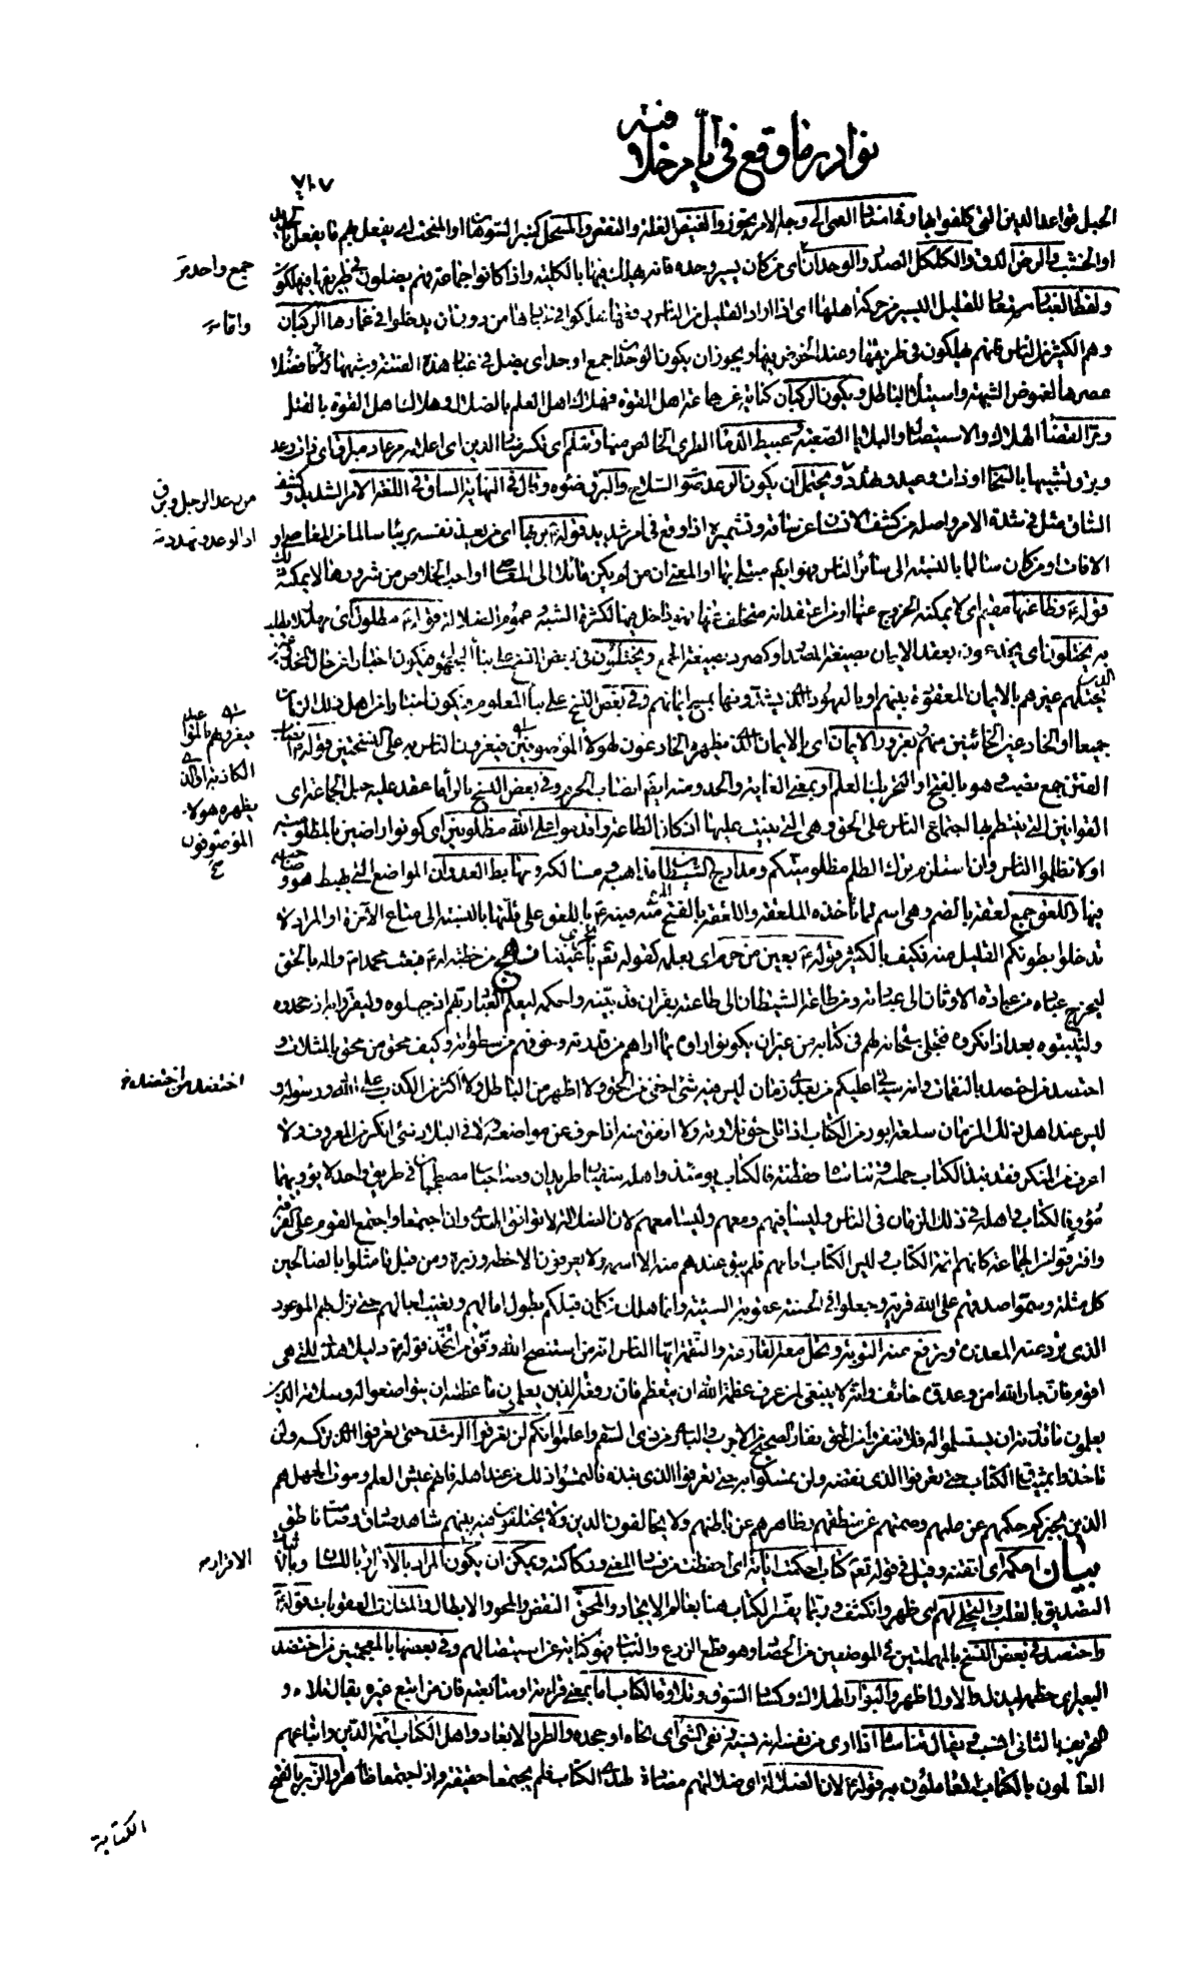 نوادر ما وقع في أيام خلافته
٧٠٧
الحبل قواعد الدين التي كلفوا بها وفي اسناد العمى الى وجه الامر تجوز والغيض القلة والنقص والمسحل كمنبر السوهان او المنحت اي يفعل بهم ما يفعل
او الخشب والرض الدق والكلكل الصدر والوحدان اي من كان يسير وحده فانه يهلك فيها بالكلية واذا كانوا جماعة فهم يضلون في طريقها فيهلكون
جمع واحد
ولفظ الغبار مستعار للقليل اليسير من حركة اهلها اي اذا اراد القليل من الناس دفعها هلكوا في غبارها من دون ان يدخلوا في غمارها الركبان
واما
وهم الكثير من الناس فانهم يهلكون في طريقها وعند الخوض فيها ويجوز ان يكون الوحدان جمع اوحد اي يضل في غبار هذه الفتنة وشبهها فضلاء
عصرها لغموض الشبهة واستيلاء الباطل ويكون الركبان كناية عن اهل القوة فهلاك اهل العلم بالضلال وهلاك اهل القوة بالقتل
ومر القضاء الهلاك والاستيصال والبلايا الصعبة وعبيط الدماء الطري الخالص منها وتثلم اي تكسر منار الدين اي اعلامه مرعاد مبراق اي ذات رعد
وبرق تشبيها بالسحاب او ذات وعيد وتهدد ويحتمل ان يكون الرعد صوت السلاح والبرق ضوءه وقال في النهاية الساق في اللغة الامر الشديد وكشف
من رعد الرجل وبرق
الساق مثل في شدة الامر واصله من كشف الانسان عن ساقه وتشميره اذا وقع في امر شديد قوله بريها اي من يعد نفسه بريئا سالما من المعاصي او
اذا اوعد وتهدد
الافات او من كان سالما بالنسبة الى سائر الناس فهو ايضا مبتلى بها او المعنى ان من لم يكن مائلا الى المعاصي او احب الخلاص من شرورها لا يمكنه ذلك
قوله وظاعنها مقيم اي لا يمكنه الخروج عنها او من اعتقد انه متخلف عنها فهو داخل فيها لكثرة الشبه وعموم الضلالة قوله مطلول اي مهدر لا يطلب
به يختلون اي يخدعون بعقد الايمان بصيغة المصدر او كصرد بصيغة الجمع ويختلون في بعض النسخ على بناء المجهول فيكون اخبارا عن حال المخدوعين
الذين يختلهم غيرهم بالايمان المعقودة بينهم او بالعهود التي يشدونها بمسح ايمانهم وفي بعض النسخ على بناء المعلوم فيكون اخبارا عن اهل ذلك الزمان
جميعا او الخادعين الخائنين منهم وبغرور الايمان اي بالايمان الذي يظهره الخادعون لهؤلاء الموصوفين فيغرون الناس به على النسختين قوله انصاب
فيغرونهم بالمواعيد الكاذبة او الذي يظهره هولاء الموصوفون
الفتن جمع نصب وهو بالفتح او التحريك العلم او بمعنى الغاية والحد ومنه انصاب الحرم وفي بعض النسخ بالراء ما عقد عليه حبل الجماعة اي
القوانين التي ينتظم بها اجتماع الناس على الحق وهي التي بنيت عليها اركان الطاعة واقدموا على الله مظلومين اي كونوا راضين بالمظلومية
او لا تظلموا الناس وان استلزم ترك الظلم مظلوميتكم ومدارج الشيطان مذاهبه ومسالكه ومهابط العدوان المواضع التي يهبط هو وصاحبه
فيها واللعق جمع لعقة بالضم وهي اسم لما تأخذه الملعقة واللعقة بالفتح المرة منه فنبه باللعق على قلتها بالنسبة الى متاع الآخرة او المراد لا
تدخلوا بطونكم القليل منه فكيف بالكثير قوله بعين من حرم اي بعلمه كقوله تعالى تجري بأعيننا نهج من خطبة له فبعث محمدا صلى الله عليه واله بالحق
ليخرج عباده من عبادة الاوثان الى عبادته ومن طاعة الشيطان الى طاعته بقرآن قد بينه واحكمه ليعلم العباد ربهم اذ جهلوه وليقروا به اذ جحدوه
وليثبتوه بعد اذ انكروه فتجلى سبحانه لهم في كتابه من غير ان يكونوا راوه بما اراهم من قدرته وخوفهم من سطوته وكيف محق من محق بالمثلات و
احتصد من احتصد بالنقمات وانه سيأتي عليكم من بعدي زمان ليس فيه شئ اخفى من الحق ولا اظهر من الباطل ولا اكثر من الكذب على الله ورسوله و
اختضد من اختضد
ليس عند اهل ذلك الزمان سلعة ابور من الكتاب اذا تلي حق تلاوته ولا انفق منه اذا حرف عن مواضعه ولا في البلاد شئ انكر من المعروف ولا
اعرف من المنكر فقد نبذ الكتاب حملته وتناساه حفظته فالكتاب يومئذ واهله منفيان طريدان وصاحبان مصطحبان في طريق واحد لا يؤويهما
مؤو فالكتاب واهله في ذلك الزمان في الناس وليسا فيهم ومعهم وليسا معهم لان الضلالة لا توافق الهدى وان اجتمعا واجتمع القوم على الفرقة
وافترقوا عن الجماعة كانهم ائمة الكتاب وليس الكتاب امامهم فلم يبق عندهم منه الا اسمه ولا يعرفون الا خطه وزبره ومن قبل ما مثلوا بالصالحين
كل مثلة وسموا صدقهم على الله فرية وجعلوا في الحسنة عقوبة السيئة وانما هلك من كان قبلكم بطول امالهم وتغيب اجالهم حتى نزل بهم الموعود
الذي ترد عنه المعذرة وترفع عنه التوبة وتحل معه القارعة والنقمة ايها الناس انه من استنصح الله وفق ومن اتخذ قوله دليلا هدي للتي هي
اقوم فان جار الله امن وعدوه خائف وانه لا ينبغي لمن عرف عظمة الله ان يتعظم فان رفعة الذين يعلمون ما عظمته ان يتواضعوا له وسلامة الذين
يعلمون ما قدرته ان يستسلموا له فلا تنفروا من الحق نفار الصحيح من الاجرب والبارئ من ذي السقم واعلموا انكم لن تعرفوا الرشد حتى تعرفوا الذي تركه ولن
تاخذوا بميثاق الكتاب حتى تعرفوا الذي نقضه ولن تمسكوا به حتى تعرفوا الذي نبذه فالتمسوا ذلك من عند اهله فانهم عيش العلم وموت الجهل هم
الذين يخبركم حكمهم عن علمهم وصمتهم عن منطقهم وظاهرهم عن باطنهم ولا يخالفون الدين ولا يختلفون فيه فهو بينهم شاهد صادق وصامت ناطق
بيان احكمه اي اتقنه وقيل في قوله تعالى كتاب احكمت اياته اي احفظت من فساد المعنى وركاكته ويمكن ان يكون المراد بالاقرار باللسان وبالاثبات
الاقرار
التصديق بالقلب والتجلي لهم اي ظهر وانكشف وربما يفسر الكتاب هنا بعالم الايجاد والمحق النقض والمحو والابطال والمثلات العقوبات قوله
واحتصد في بعض النسخ بالمهملتين في الموضعين من الحصاد وهو قطع الزرع والنبات فهو كناية عن استيصالهم وفي بعضها بالمعجمتين من اختضد
البعير اي خطمه ليذل والاول اظهر والبوار الهلاك وكساد السوق وتلاوة الكتاب اما بمعنى قراءته او متابعته فان من اتبع غيره يقال تلاه و
التحريف بالثاني انسب ويقال تناساه اذا ارى من نفسه انه نسيه ونفى الشئ اي نحاه او جحده والطرد الابعاد واهل الكتاب ائمة الدين واتباعهم
العالمون بالكتاب العاملون به قوله لان الضلالة اي ضلالتهم مضادة لهدى الكتاب فلم يجتمعا حقيقة وان اجتمعا ظاهرا والزبر بالفتح
الكتابة